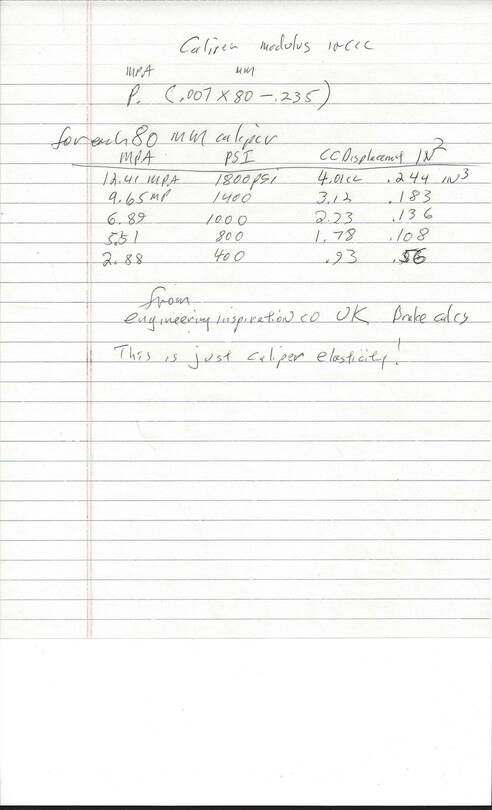 Caliper modulus in CCC
MPA MM
P. (.007 X 80 - .235)
for each 80 MM caliper
MPA PSI CC Displacement IN2
12.41 MPA 1800 PSi 4.01cc .244 IN3
9.65 MP 1400 3.12 .183
6.89 1000 2.23 .136
5.51 800 1.78 .108
2.88 400 .93 .56
from
engineering inspiration co UK Brake calcs
This is just caliper elasticity!